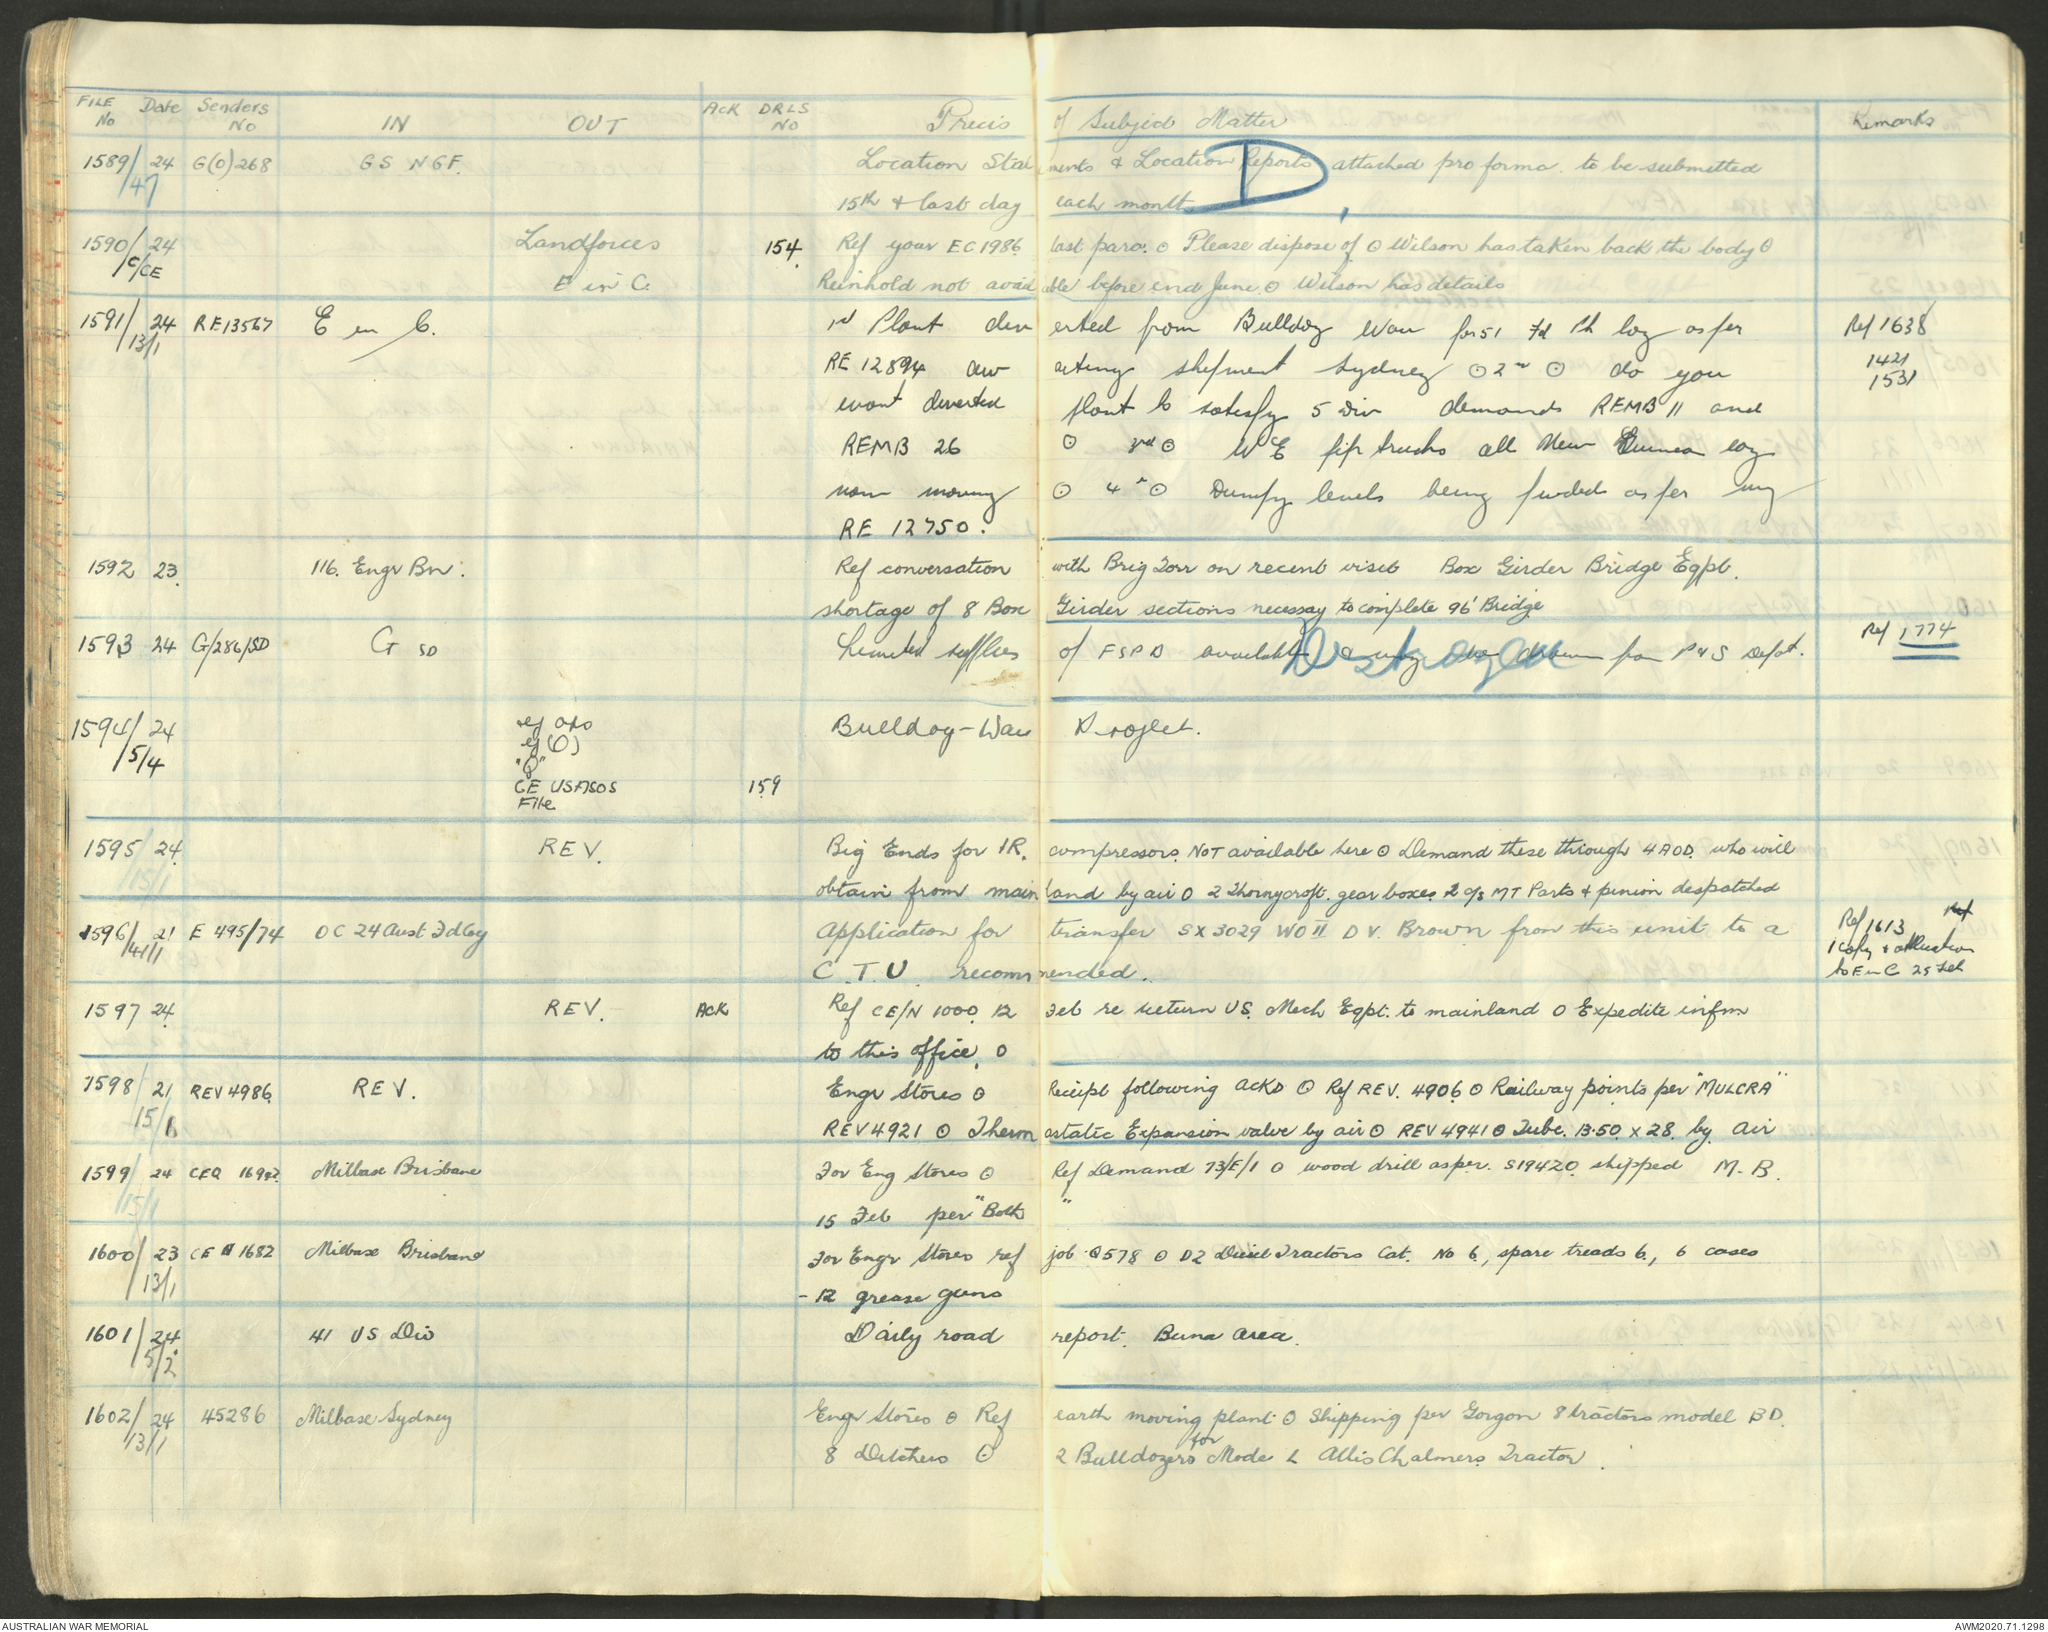 FILE No Date Senders No IN OUT Ack DRLS No Precis of Subject Matter Remarks
1589/ 24 G(O)268 GS NGF. Location Statements & Location Reports attached pro forma. to be submitted
47 15th & last day each month
D
1590/ 24 Landforces 154. Ref your EC1986 last para. ⊙ Please dispose of ⊙ Wilson has taken back the body ⊙
C/CE E in C. Reinhold not available before end June. ⊙ Wilson has details
1591/ 24 RE13567 E in C. 1st Plant diverted from Bulldog Wau for 51 Fd Pk Coy as per Ref 1638
13/1 RE 12894 awaiting shipment Sydney ⊙ 2nd ⊙ do you 1421
want diverted plant to satisfy 5 Div demands REMB 11 and 1531
REMB 26 ⊙ 3rd ⊙ WE tip trucks all New Guinea coy
now moving ⊙ 4th ⊙ Dumpy levels being as per my
RE 12750.
1592 23. 116. Engr Bn. Ref conversation with Brig Torr on recent visit Box Girder Bridge Eqpt.
shortage of 8 Box Girder sections necessay to complete 96' Bridge
1593 24 G/286/SD G SD Limited supplies of FSPD available from P & S Depot. Ref 1774
Destroyed
1594/ 24 Bulldog-Wau Project.
5/4 "Q"
CE USASOS 159
File
1595/ 24. REV. Big Ends for IR. compressors. NOT available here ⊙ Demand these through 4 AOD. who will
15/1 obtain from mainland by air ⊙ 2 Thornycroft. gear boxes. 2 c/s MT Parts & pinion despatched
1596/ 21 E 495/74 OC 24 Aust Fd Coy Application for transfer SX3029 WO II D V. Brown from this unit to a Ref 1613 Ref
41/1 C.T.U. recommended. 1 copy &
to E in C 25 Feb
1597 24. REV. Ack Ref CE/N 1000. 12 Feb re return US. Mech Eqpt. to mainland ⊙ Expedite infm
to this office. ⊙
1598/ 21 REV 4986. REV. Engr Stores ⊙ Receipt following ACKD ⊙ Ref REV. 4906 ⊙ Railway points per "MULCRA"
15/1 REV4921 ⊙ Thermostatic Expansion valve by air ⊙ REV 4941 ⊙ Tube. 13.50 x 28. by Air
1599/ 24 CEQ Milbase Brisbane For Eng Stores ⊙ Ref Demand 73/E/1 ⊙ wood drill as per. S19420. shipped M.B.
15/1 15 Feb per "Both"
1600/ 23 CE 1682 Milbase Brisbane For Engr Stores ref job Q578 ⊙ D2 Diesel Tractors Cat. No 6., spare treads 6., 6 cases
13/1 - 12 grease guns
1601/ 24. 41 US Div Daily road report. Buna area.
5/2
1602/ 24 45286 Milbase Sydney Engr Stores ⊙ Ref earth moving plant ⊙ Shipping per Gorgon 8 tractors model BD.
13/1 8 Ditchers ⊙ 2 Bulldozers for Mode L Allis Chalmers Tractor.
AUSTRALIAN WAR MEMORIAL AWM2020.71.1298